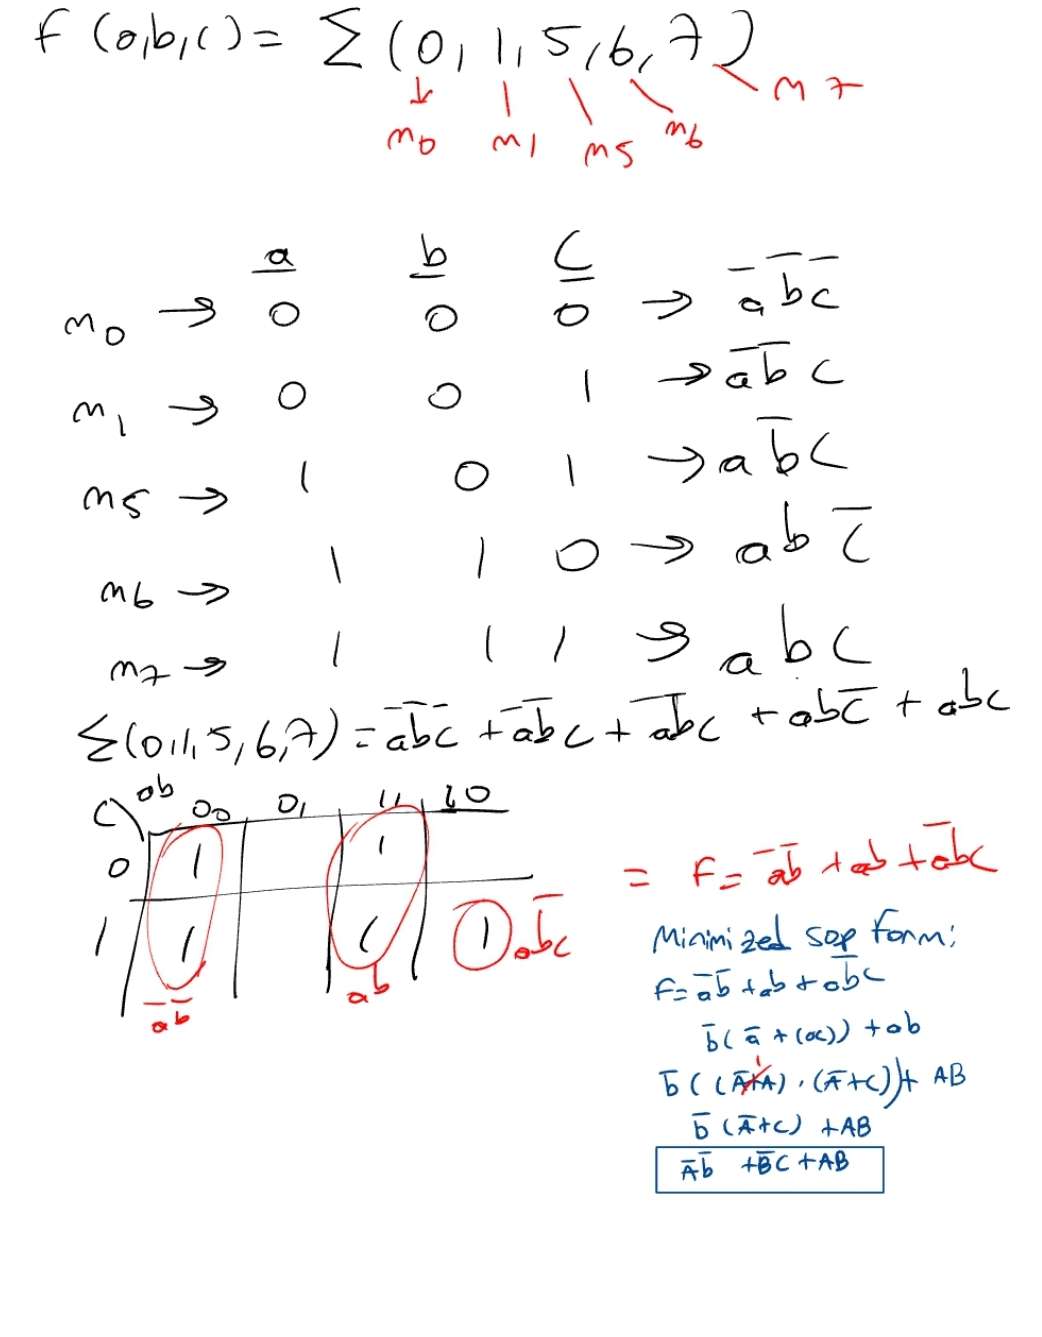 f (a,b,c) = Σ (0, 1, 5, 6, 7)
m0 m1 m5 m6 m7
a b c
m0 → 0 0 0 → a̅ b̅ c̅
m1 → 0 0 1 → a̅ b̅ c
m5 → 1 0 1 → a b̅ c
m6 → 1 1 0 → a b c̅
m7 → 1 1 1 → a b c
Σ(0,1,5,6,7) = a̅b̅c̅ + a̅b̅c + a̅b̅c + abc̅ + abc
c\ab 00 01 11 10
0 1 1
1 1 1 1 ab̅c
a̅b̅ ab
= F= a̅b̅ + ab + a̅bc
Minimized sop form:
F= a̅b̅ + ab + ab̅c
b̅( a̅ + (ac)) + ab
b̅ ( (A̅+A) . (A̅+C) ) + AB
1
b̅ (A̅+C) + AB
A̅b̅ + B̅C + AB